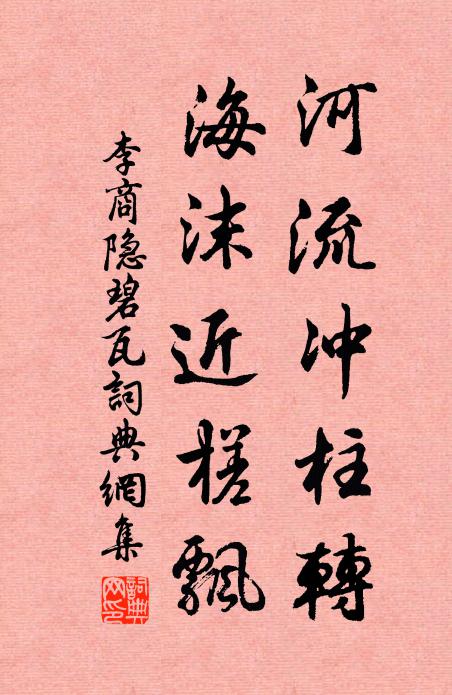 河流冲柱轉
海沫近槎飄
李商隐碧瓦詞典網集